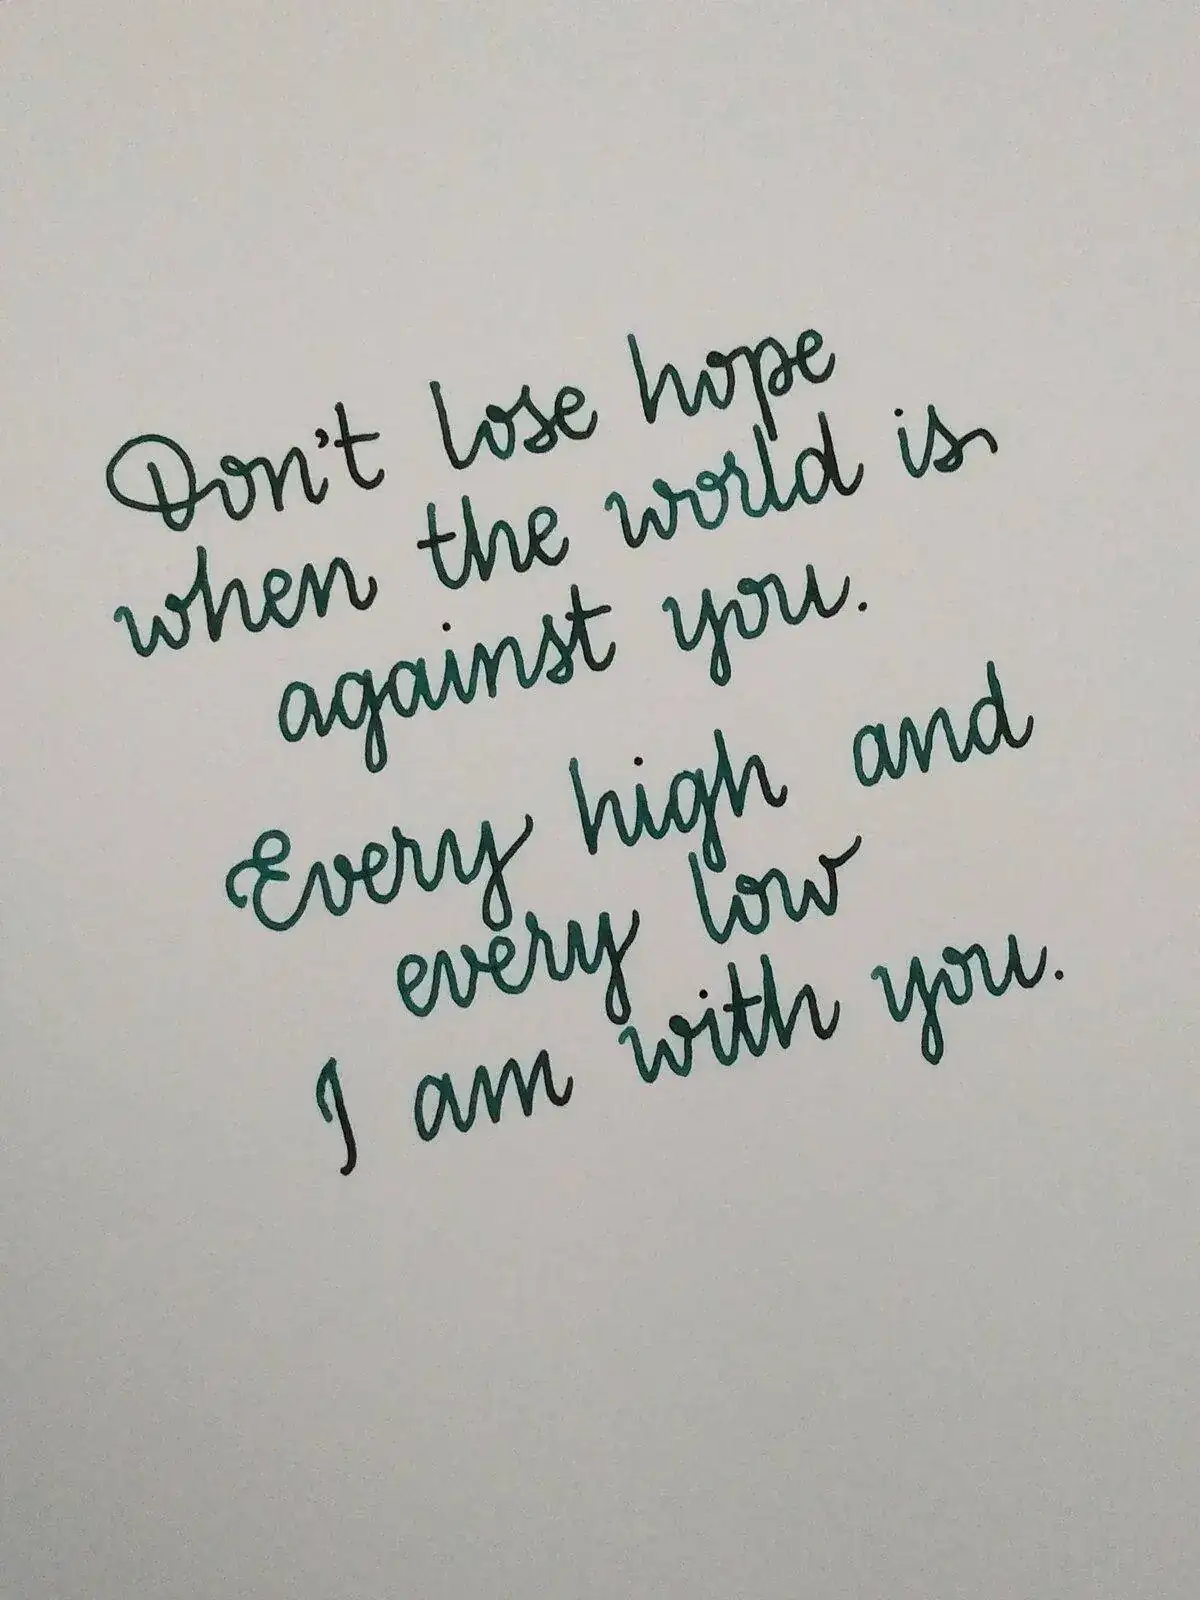 Don't lose hope
when the world is
against you.
Every high and
every low
I am with you.